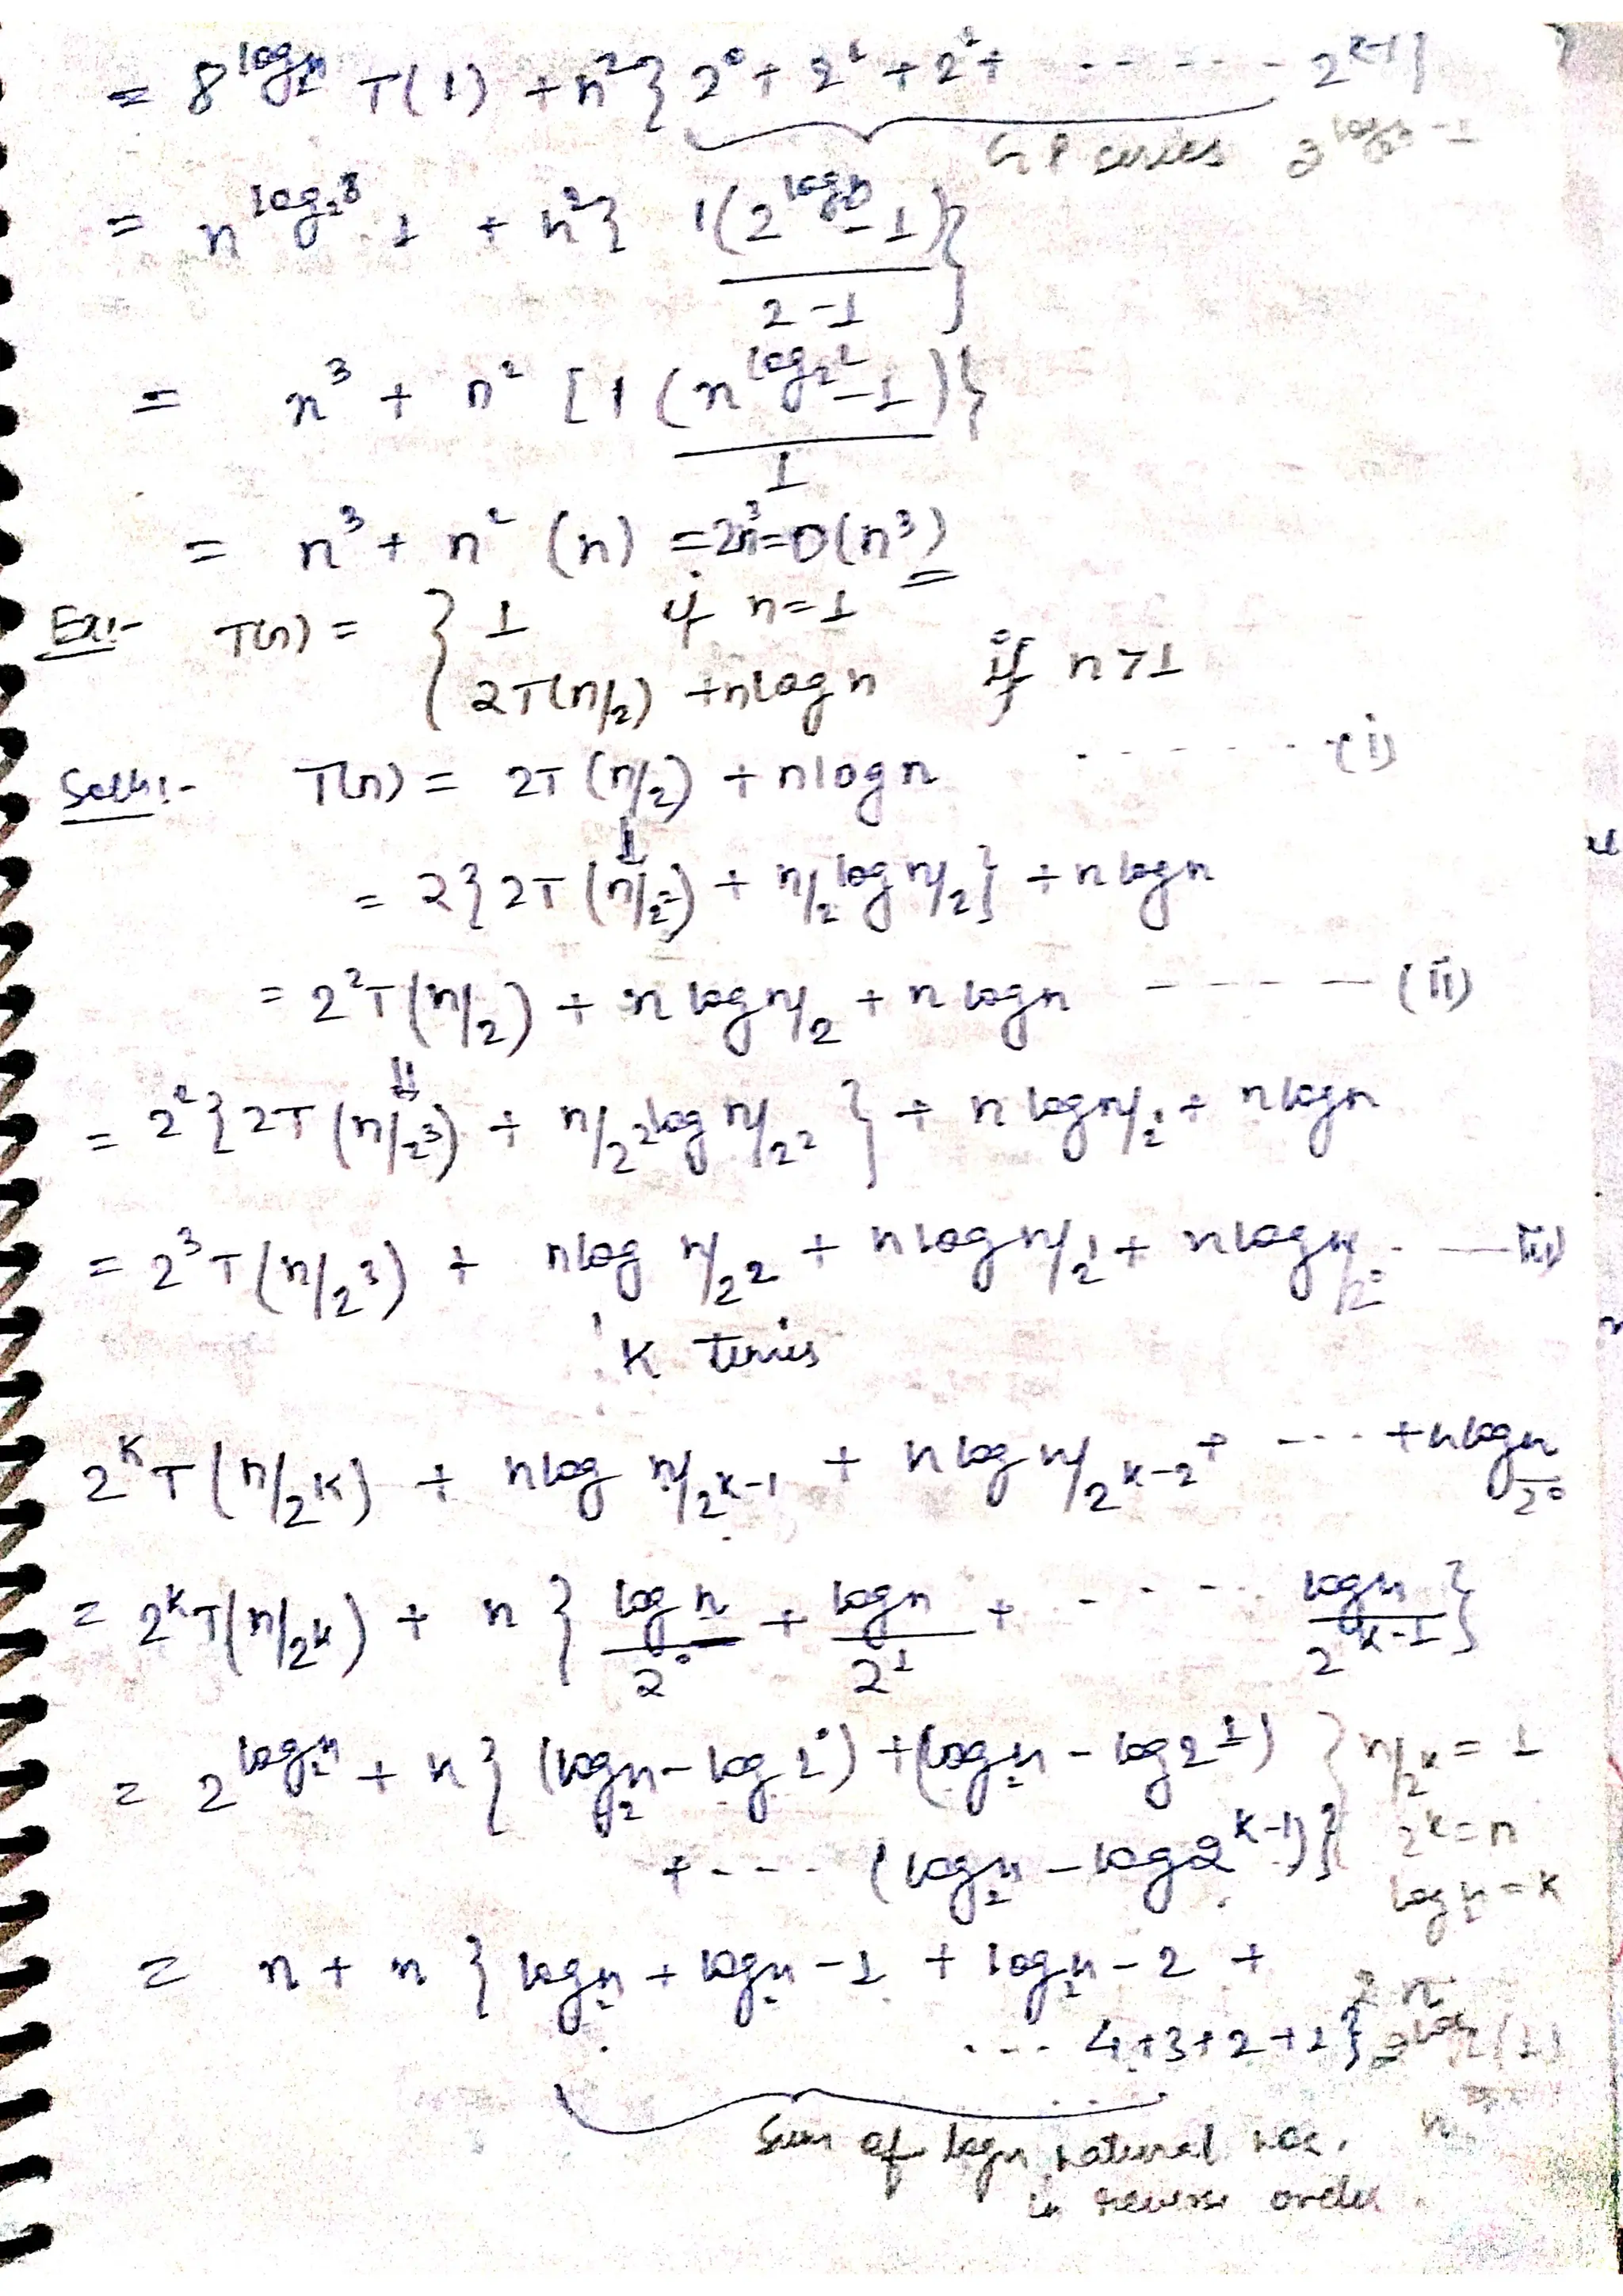 = 8^log₂n T(1) + n² { 2⁰ + 2¹ + 2² + ------ 2^(k-1) }
GP series
= n^log₂8 · 1 + n² { 1(2^log₂n - 1) / 2-1 }
= n³ + n² [ 1 (n^log₂2 - 1) / 1 }
= n³ + n² (n) = 2n³ = O(n³)
Ex:- T(n) = { 1 if n=1
2T(n/2) + nlogn if n>1
Soln:- T(n) = 2T(n/2) + nlogn ------ (i)
= 2{2T(n/2²) + n/2 log n/2} + nlogn
= 2²T(n/2) + n log n/2 + n logn ----- (ii)
= 2²{2T(n/2³) + n/2² log n/2²} + n log n/2¹ + nlogn
= 2³T(n/2³) + nlog n/2² + nlog n/2¹ + nlog n/2⁰ ---- (iii)
K terms
2^K T(n/2^K) + nlog n/2^(K-1) + nlog n/2^(K-2) + ---- + nlog n/2⁰
= 2^K T(n/2^K) + n { log n/2⁰ + log n/2¹ + ---- log n/2^(K-1) }
= 2^log₂n + n { (log₂n - log 2⁰) + (log₂n - log 2¹) } n/2^k = 1
+ ---- (log₂n - log 2^(k-1)) } 2^k = n
log n = k
= n + n { log₂n + log₂n - 1 + log₂n - 2 +
... 4+3+2+1 }
Sum of logn natural nos.
in reverse order.